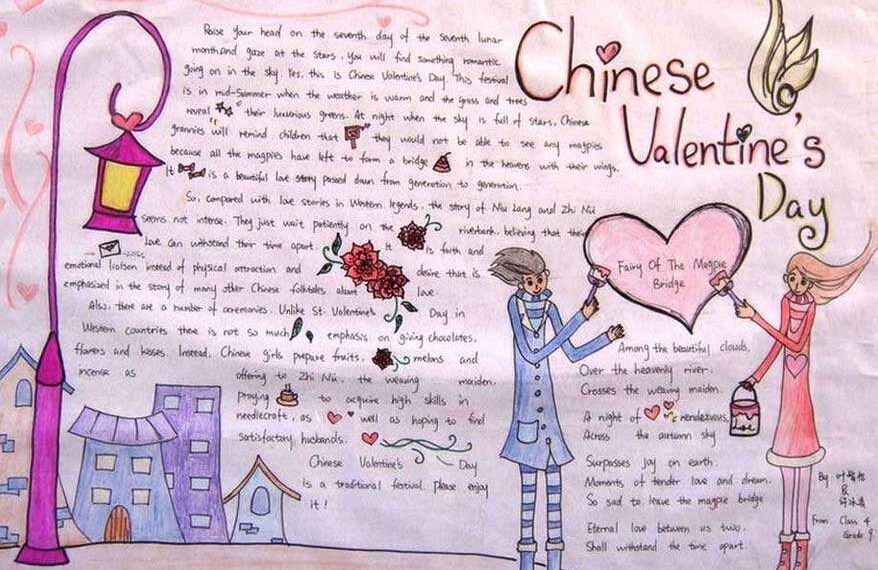 Chinese
Valentine's
Day
Raise your head on the seventh day of the seventh lunar
month and gaze at the stars. You will find something romantic
going on in the sky. Yes, this is Chinese Valentine's Day. This festival
is in mid-summer when the weather is warm and the grass and trees
reveal their luxurious greens. At night when the sky is full of stars, Chinese
grannies will remind children that they would not be able to see any magpies
because all the magpies have left to form a bridge in the heavens with their wings.
It is a beautiful love story passed down from generation to generation.
So, compared with love stories in Western legends, the story of Niu Lang and Zhi Nü
seems not intense. They just wait patiently on the riverbank, believing that their
Love can withstand their time apart. It is faith and
emotional liaison instead of physical attraction and desire that is
emphasized in the story of many other Chinese folktales about love.
Also, there are a number of ceremonies. Unlike St. Valentine's Day in
Western countries there is not so much emphasis on giving chocolates,
flowers and kisses. Instead, Chinese girls prepare fruits, melons and
incense as offering to Zhi Nü, the weaving maiden,
praying to acquire high skills in
needlecraft, as well as hoping to find
satisfactory husbands.
Chinese Valentine's Day
is a traditional festival. please enjoy
it!
Fairy Of The Magpie
Bridge
Among the beautiful clouds,
Over the heavenly river.
Crosses the weaving maiden.
A night of rendezvous,
Across the autumn sky
Surpasses joy on earth.
Moments of tender love and dream.
So sad to leave the magpie bridge
Eternal love between us two.
Shall withstand the time apart.
By
From Class 4
Grade 9